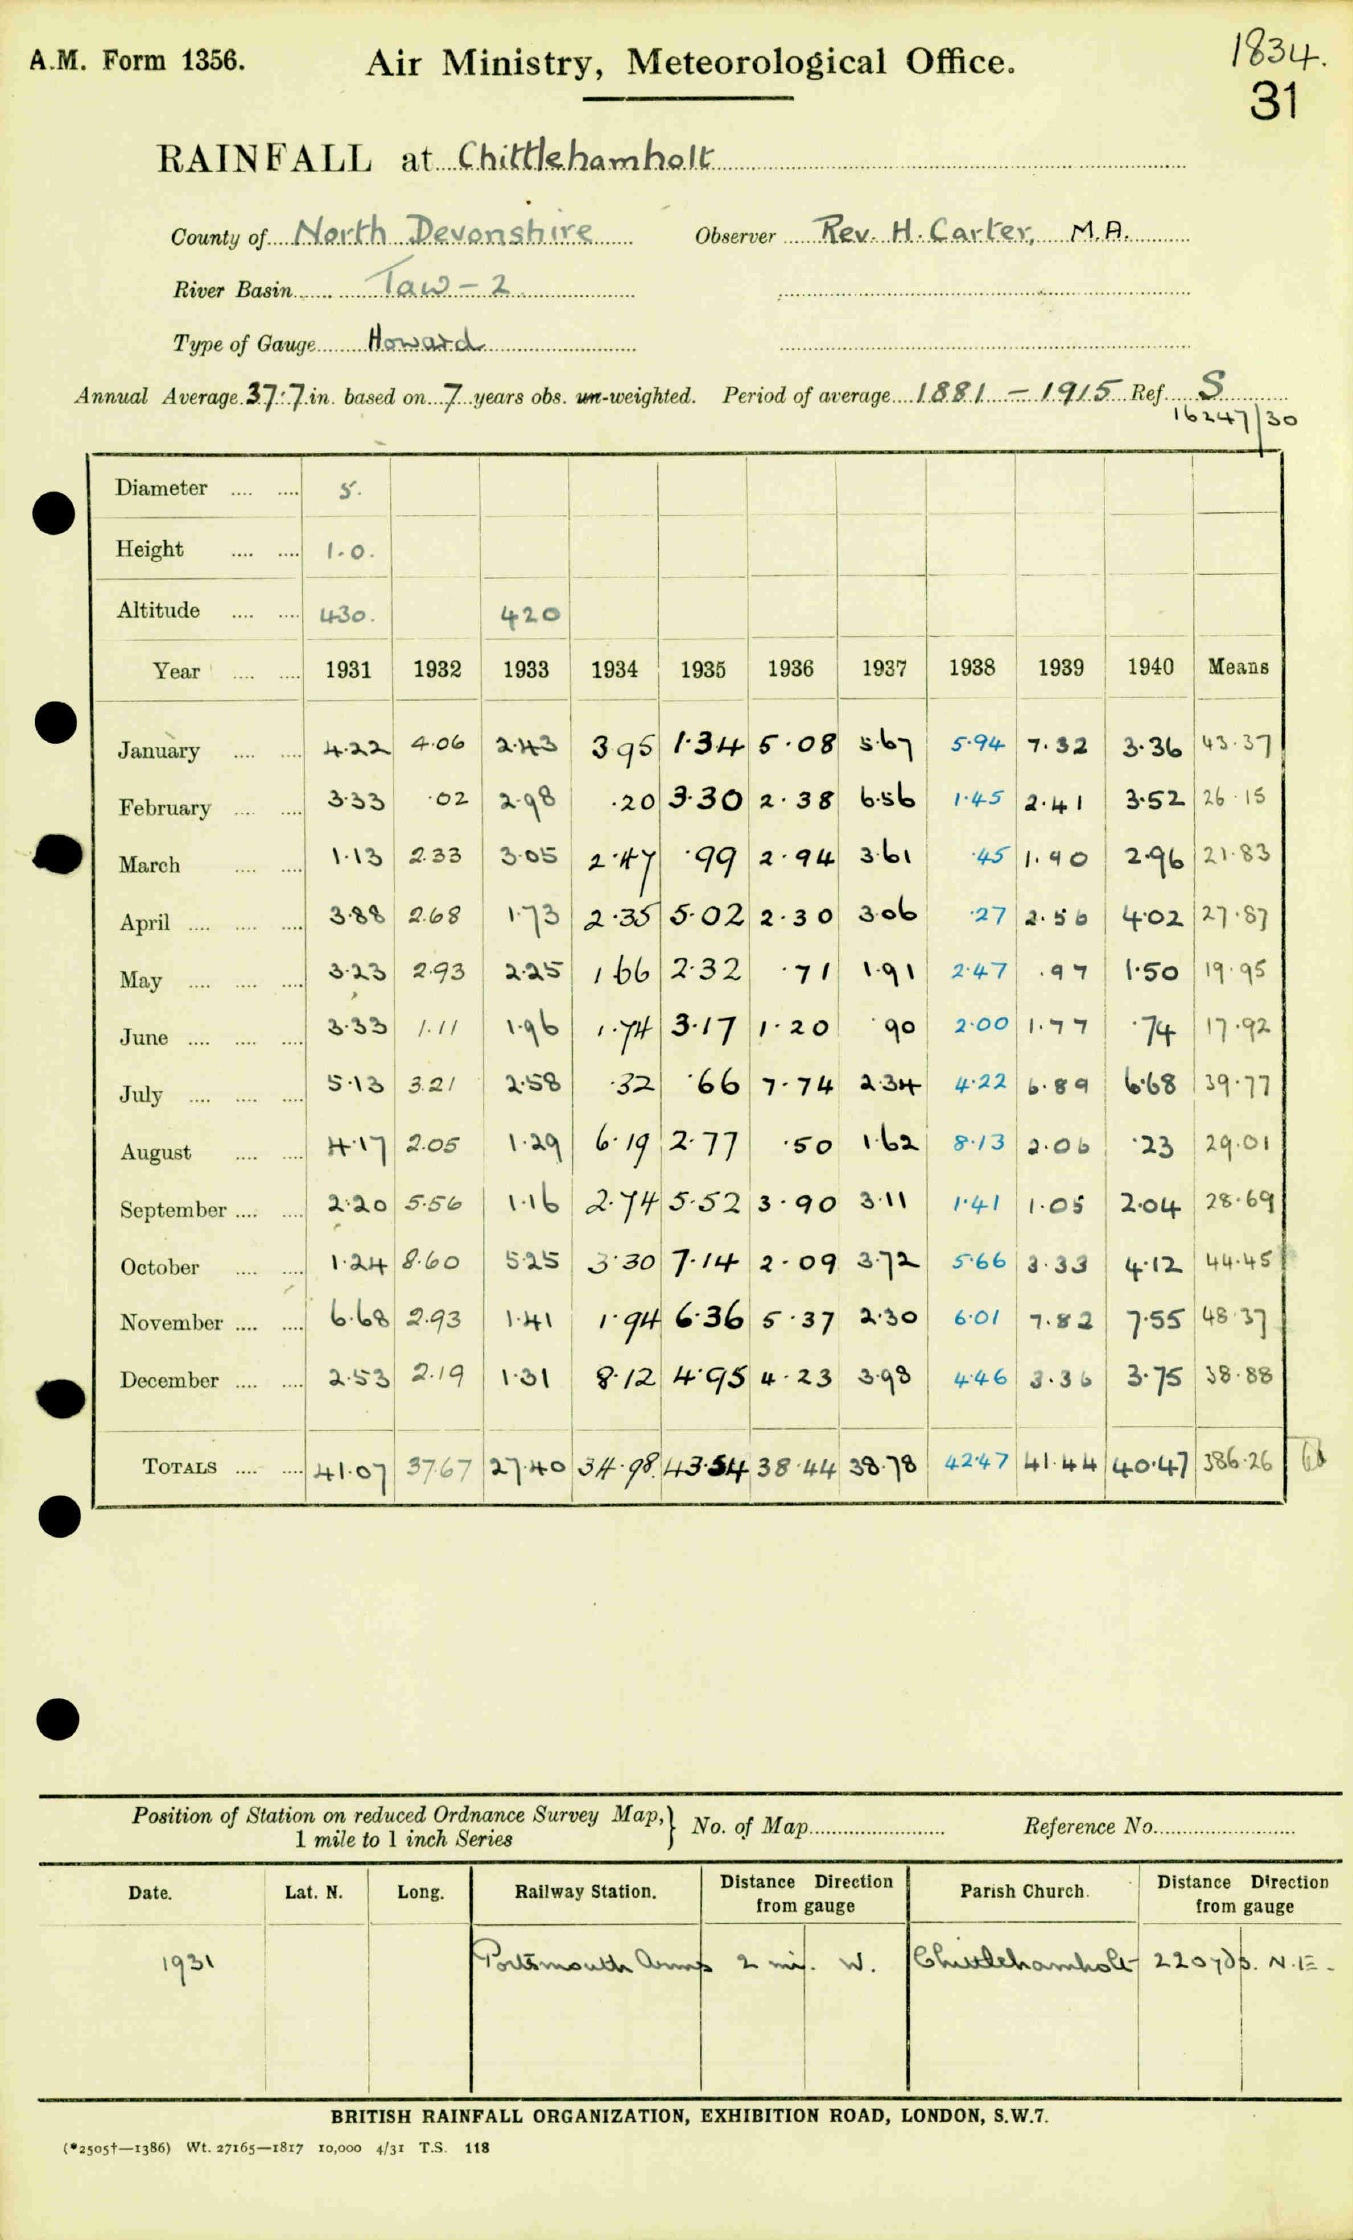 A.M. Form 1356. Air Ministry, Meteorological Office. 1834.
31
RAINFALL at Chittlehamholt
County of North Devonshire Observer Rev. H. Carter, M.A.
River Basin Taw - 2
Type of Gauge Howard
Annual Average 37.7 in. based on 7 years obs. un-weighted. Period of average 1881 - 1915 Ref. S
16247/30
Diameter .... .... 5.
Height .... .... 1.0.
Altitude .... .... 430. 420
Year .... .... 1931 1932 1933 1934 1935 1936 1937 1938 1939 1940 Means
January .... .... 4.22 4.06 2.43 3.95 1.34 5.08 5.67 5.94 7.32 3.36 43.37
February .... .... 3.33 .02 2.98 .20 3.30 2.38 6.56 1.45 2.41 3.52 26.15
March .... .... 1.13 2.33 3.05 2.47 .99 2.94 3.61 .45 1.90 2.96 21.83
April .... .... .... 3.88 2.68 1.73 2.35 5.02 2.30 3.06 .27 2.56 4.02 27.87
May .... .... .... 3.23 2.93 2.25 1.66 2.32 .71 1.91 2.47 .97 1.50 19.95
June .... .... .... 3.33 1.11 1.96 1.74 3.17 1.20 .90 2.00 1.77 .74 17.92
July .... .... .... 5.13 3.21 2.58 .32 .66 7.74 2.34 4.22 6.89 6.68 39.77
August .... .... 4.17 2.05 1.29 6.19 2.77 .50 1.62 8.13 2.06 .23 29.01
September .... .... 2.20 5.56 1.16 2.74 5.52 3.90 3.11 1.41 1.05 2.04 28.69
October .... .... 1.24 8.60 5.25 3.30 7.14 2.09 3.72 5.66 3.33 4.12 44.45
November .... .... 6.68 2.93 1.41 1.94 6.36 5.37 2.30 6.01 7.82 7.55 48.37
December .... .... 2.53 2.19 1.31 8.12 4.95 4.23 3.98 4.46 3.36 3.75 38.88
TOTALS .... .... 41.07 37.67 27.40 34.98 43.54 38.44 38.78 42.47 41.44 40.47 386.26
Position of Station on reduced Ordnance Survey Map,} No. of Map Reference No.
1 mile to 1 inch Series
Date. Lat. N. Long. Railway Station. Distance Direction from gauge Parish Church. Distance Direction from gauge
1931 Portsmouth Arms 2 mi. W. Chittlehamholt 220 yds. N.E.
BRITISH RAINFALL ORGANIZATION, EXHIBITION ROAD, LONDON, S.W.7.
(*2505†—1386) Wt. 27165—1817 10,000 4/31 T.S. 118